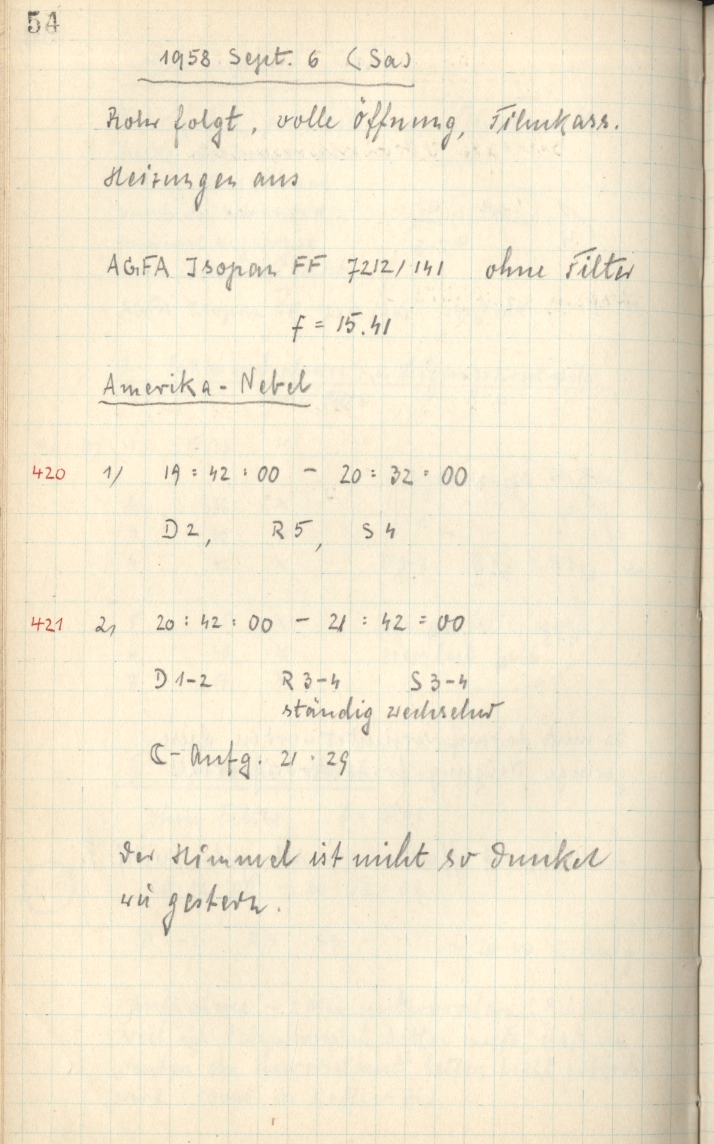 54
1958 Sept. 6 (Sa)
Rohr folgt, volle Öffnung, Filmkass.
Heizungen aus
AGFA Isopan FF 7212/141 ohne Filter
f = 15.41
Amerika-Nebel
420 1) 19:42:00 - 20:32:00
D2, R5, S4
421 2) 20:42:00 - 21:42:00
D1-2 R3-4 S3-4
ständig wechselnd
☾-Aufg. 21.29
Der Himmel ist nicht so dunkel
wie gestern.